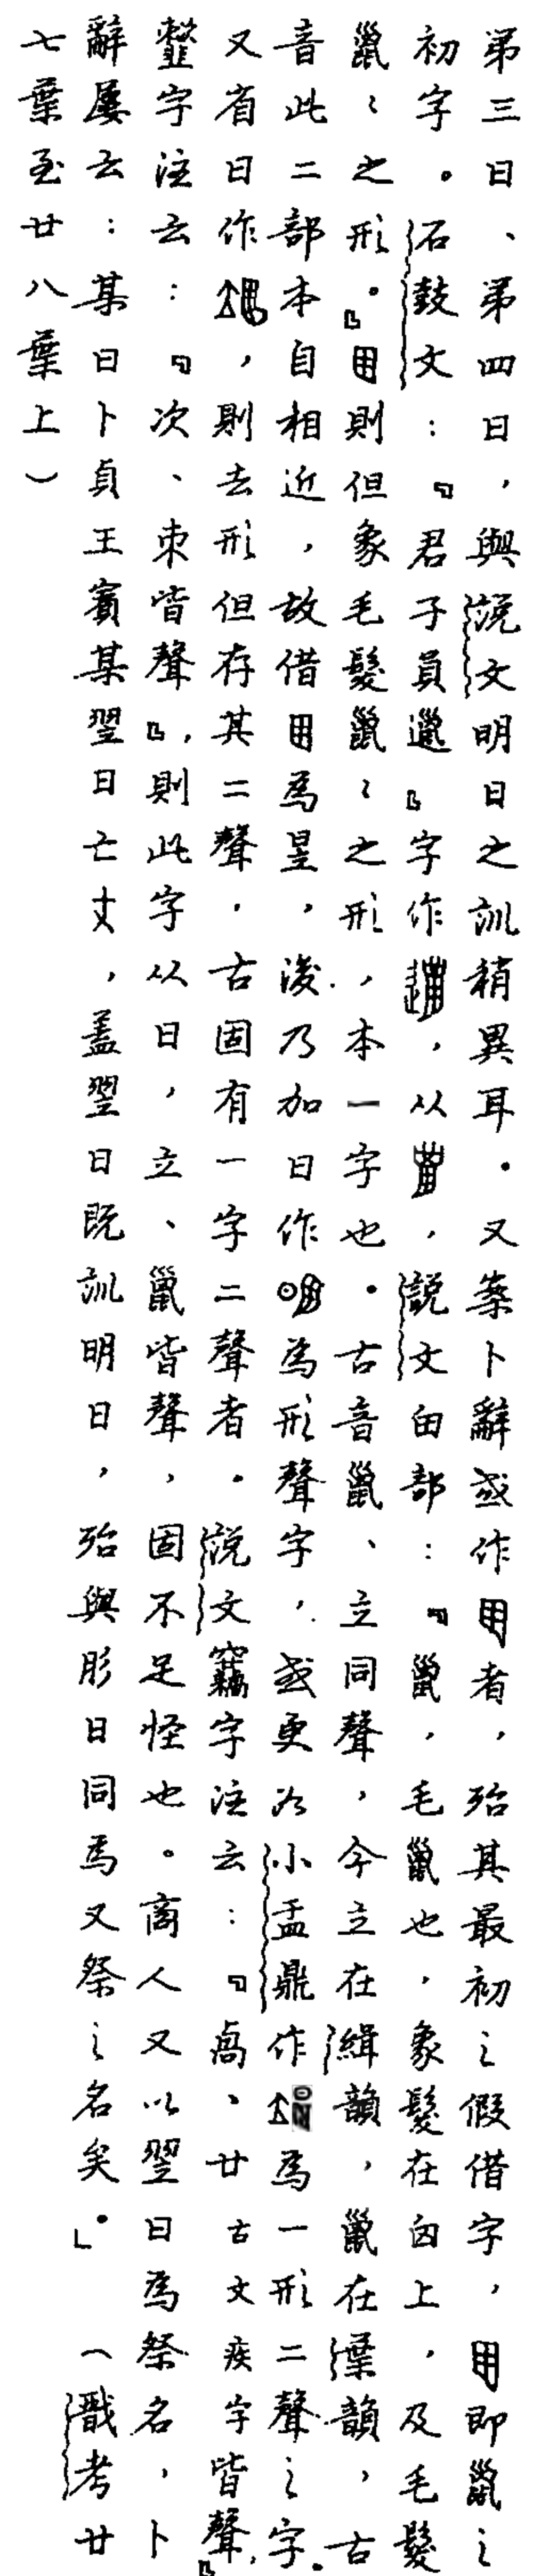 第三日、第四日，與說文明日之訓稍異耳。又案卜辭或作者，殆其最初之假借字，即巤之
初字。石鼓文：『君子員邋』字作，从，說文囟部：『巤，毛巤也，象髮在囟上，及毛髮
巤〻之形。』則但象毛髮巤〻之形，本一字也。古音巤、立同聲，今立在緝韻，巤在葉韻，古
音此二部本自相近，故借為昱，後乃加日作為形聲字，或更如小盂鼎作為一形二聲之字。
又省日作，則去形但存其二聲，古固有一字二聲者。說文竊字注云：『禼、廿古文疾字皆聲』，
韲字注云：『次、朿皆聲』，則此字从日，立、巤皆聲，固不足怪也。商人又以翌日為祭名，卜
辭屢云：某日卜貞王賓某翌日亡𡆥，蓋翌日既訓明日，殆與肜日同為又祭之名矣。」（戩考廿
七葉至廿八葉上）